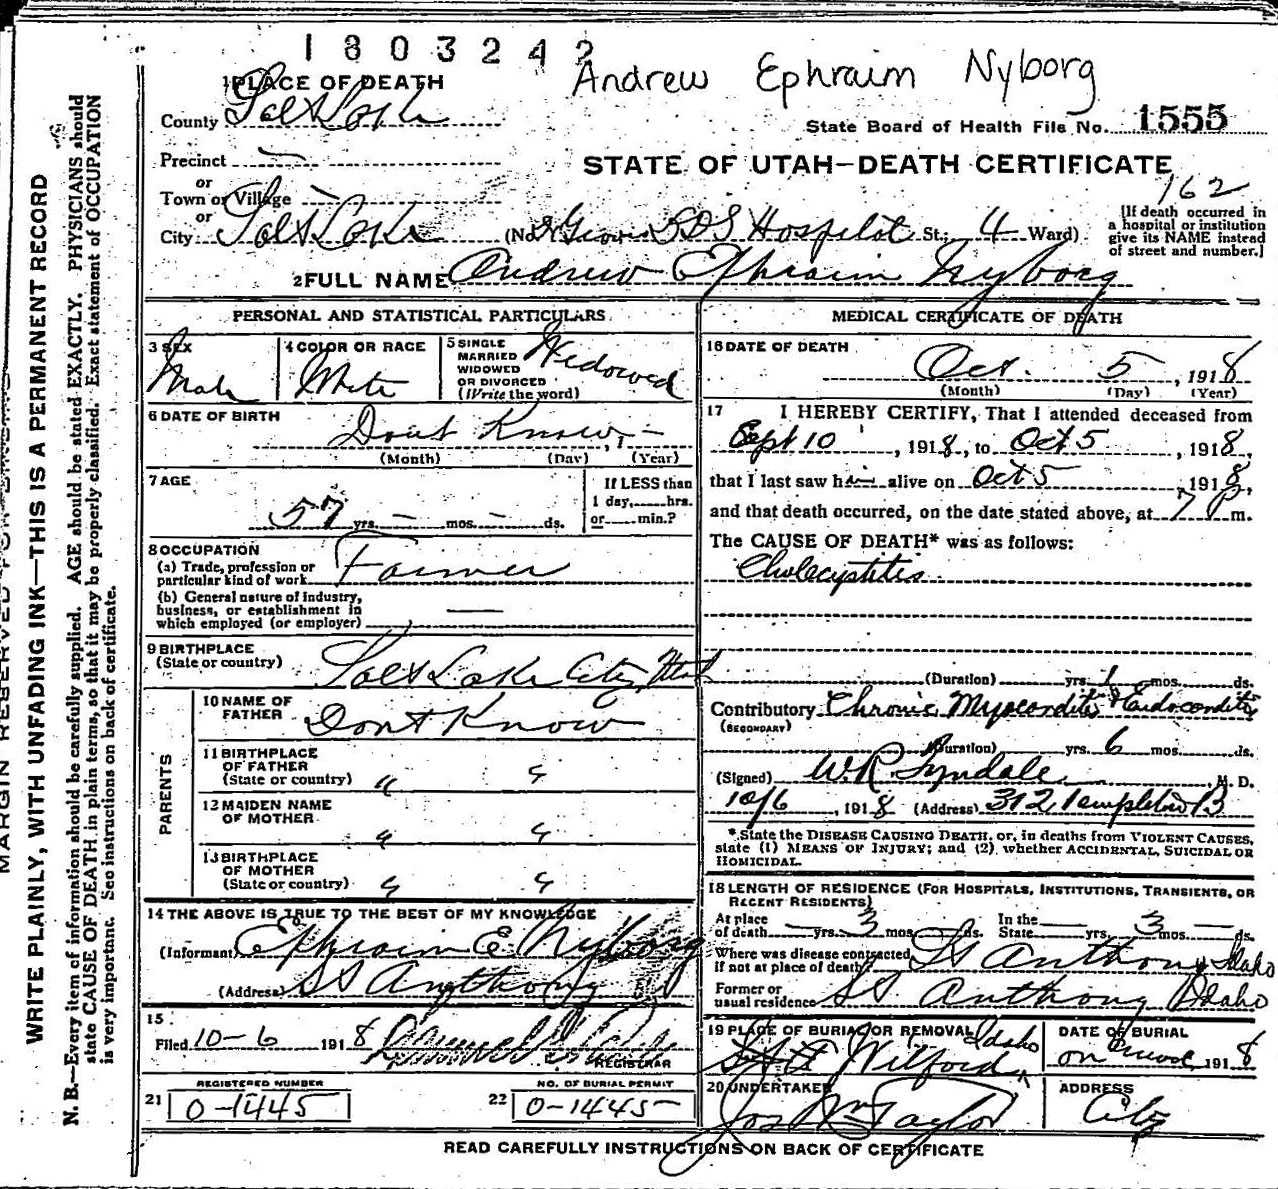 1803242
Andrew Ephraim Nyborg
1 PLACE OF DEATH
County Salt Lake
State Board of Health File No. 1555
Precinct —
STATE OF UTAH—DEATH CERTIFICATE
or
Town or Village —
162
or
City Salt Lake (No. LDS Hospital St.; 4 Ward)
[If death occurred in
a hospital or institution
give its NAME instead
of street and number.]
2 FULL NAME Andrew Ephraim Nyborg
PERSONAL AND STATISTICAL PARTICULARS
3 SEX
Male
4 COLOR OR RACE
White
5 SINGLE
MARRIED
WIDOWED
OR DIVORCED
(Write the word)
Widowed
6 DATE OF BIRTH
Dont Know, 1 —
(Month) (Day) (Year)
7 AGE
57 yrs. — mos. — ds.
If LESS than
1 day, hrs.
or min.?
8 OCCUPATION
(a) Trade, profession or
particular kind of work Farmer
(b) General nature of industry,
business, or establishment in
which employed (or employer) —
9 BIRTHPLACE
(State or country) Salt Lake City, Utah
PARENTS
10 NAME OF
FATHER Dont Know
11 BIRTHPLACE
OF FATHER
(State or country) " "
12 MAIDEN NAME
OF MOTHER " "
13 BIRTHPLACE
OF MOTHER
(State or country) " "
14 THE ABOVE IS TRUE TO THE BEST OF MY KNOWLEDGE
(Informant) Ephraim E. Nyborg
(Address) St Anthony
15
Filed 10-6 1918
REGISTRAR
REGISTERED NUMBER
21 0-1445
NO. OF BURIAL PERMIT
22 0-1445
MEDICAL CERTIFICATE OF DEATH
16 DATE OF DEATH
Oct. 5, 1918
(Month) (Day) (Year)
17 I HEREBY CERTIFY, That I attended deceased from
Sept 10, 1918, to Oct 5, 1918,
that I last saw him alive on Oct 5, 1918,
and that death occurred, on the date stated above, at 7 P m.
The CAUSE OF DEATH* was as follows:
Cholecystitis
(Duration) yrs. 1 mos. ds.
Contributory Chronic Myocarditis & Endocarditis
(SECONDARY)
(Duration) yrs. 6 mos. ds.
(Signed) W.R. Tyndale M. D.
10/6, 1918 (Address) 312 Templeton B
*State the DISEASE CAUSING DEATH, or, in deaths from VIOLENT CAUSES,
state (1) MEANS OF INJURY; and (2) whether ACCIDENTAL, SUICIDAL OR
HOMICIDAL.
18 LENGTH OF RESIDENCE (FOR HOSPITALS, INSTITUTIONS, TRANSIENTS, OR
RECENT RESIDENTS)
At place
of death — yrs. 3 mos. — ds.
In the
State — yrs. 3 mos. — ds.
Where was disease contracted
if not at place of death? St Anthony Idaho
Former or
usual residence St Anthony Idaho
19 PLACE OF BURIAL OR REMOVAL
Wilford Idaho
DATE OF BURIAL
1918
20 UNDERTAKER
Jos Wm Taylor
ADDRESS
City
READ CAREFULLY INSTRUCTIONS ON BACK OF CERTIFICATE
MARGIN RESERVED FOR BINDING
WRITE PLAINLY, WITH UNFADING INK—THIS IS A PERMANENT RECORD
N. B.—Every item of information should be carefully supplied. AGE should be stated EXACTLY. PHYSICIANS should
state CAUSE OF DEATH in plain terms, so that it may be properly classified. Exact statement of OCCUPATION
is very important. See instructions on back of certificate.